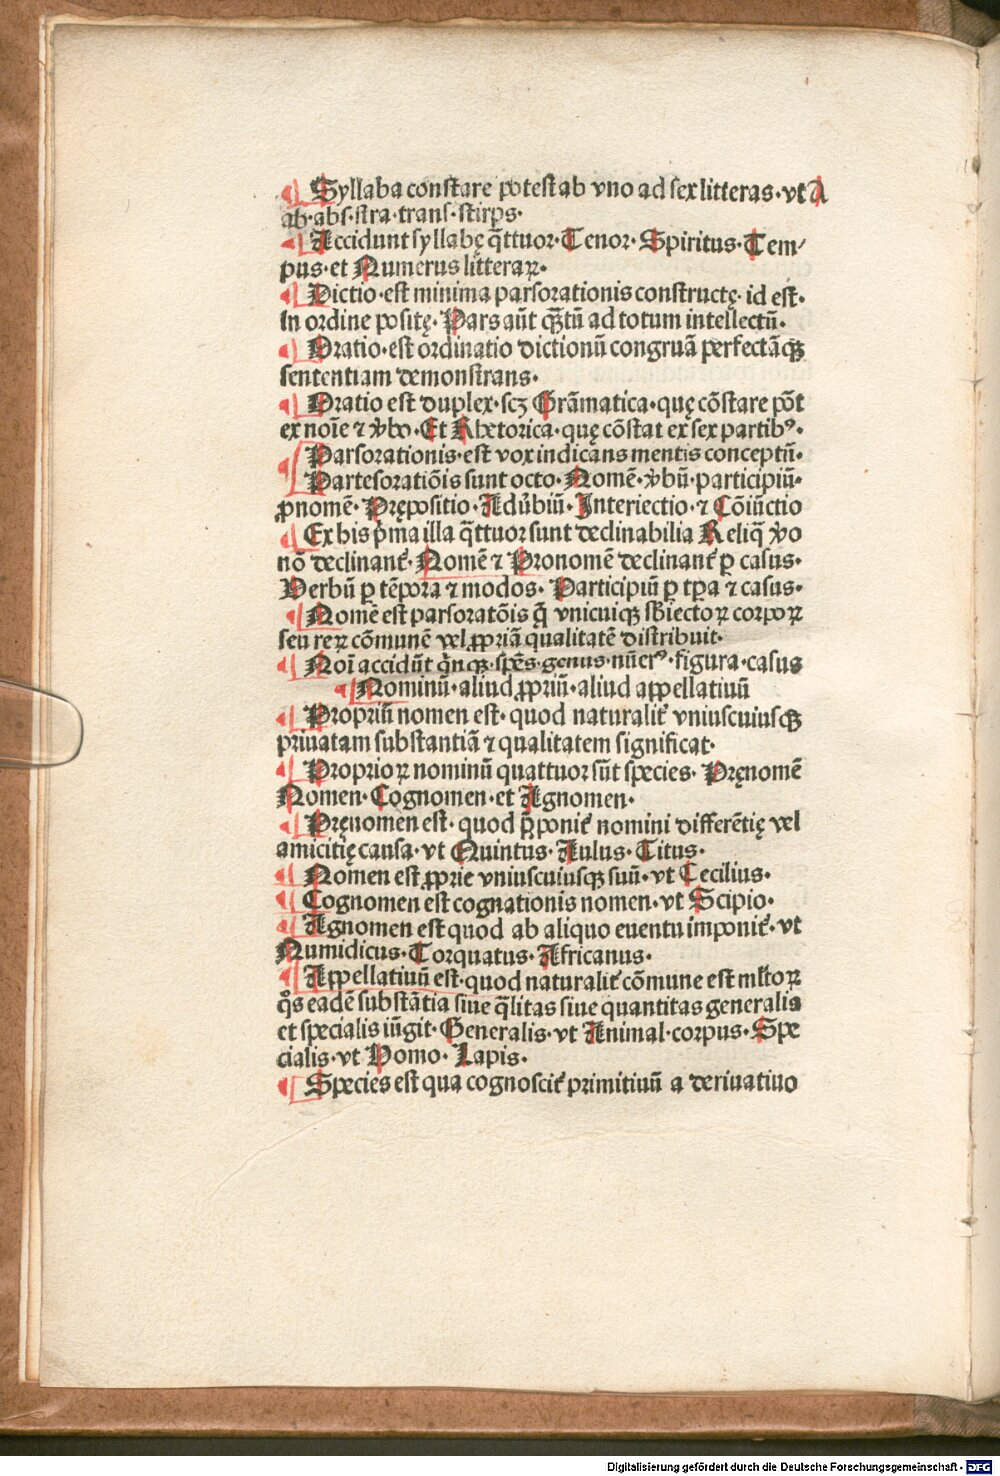 Syllaba constare potest ab vno ad sex litteras· vt A
ab· abs· stra· trans· stirps·
Accidunt syllabę q̄ttuor· Tenor· Spiritus· Tem/
pus· et Numerus litteraꝝ·
Dictio· est minima parsorationis constructę· id est·
in ordine positę· Pars aūt qȝtū ad totum intellectū·
Oratio· est ordinatio dictionū congruā perfectāqȝ
sententiam demonstrans·
Oratio est duplex· scȝ Grāmatica· quę cōstare pōt
ex noīe ⁊ v̓bo· Et Rhetorica· quę cōstat ex sex partibꝰ·
Parsorationis· est vox indicans mentis conceptū·
Partesoratiōis sunt octo· Nomē· v̓bū· participiū·
ꝓnomē· Prępositio· Adúbiū· Interiectio· ⁊ Cōiūctio
Ex his p̓ma illa q̄ttuor sunt declinabilia Reliq̄ v̓o
nō declinant᷑· Nomē ⁊ Pronomē declinant᷑ ꝑ casus·
Verbū ꝑ tēpora ⁊ modos· Participiū ꝑ tꝑa ⁊ casus·
Nomē est parsoratōis q̄ vnicuiqȝ sb̓iectoꝝ corpoꝝ
seu reꝝ cōmunē vel ꝓpriā qualitatē distribuit·
Noī accidūt q̓nqȝ· spēs· genus· nūerꝰ· figura· casus
Nominū· aliud ꝓpriū· aliud appellatiuū
Propriū nomen est· quod naturalit᷑ vniuscuiusqȝ
priuatam substantiā ⁊ qualitatem significat·
Proprioꝝ nominū quattuor sūt species· Pręnomē
Nomen· Cognomen· et Agnomen·
Pręnomen est· quod p̄ponit᷑ nomini differētię vel
amicitię causa· vt Quintus· Aulus· Titus·
Nomen est ꝓprie vniuscuiusqȝ suū· vt Cecilius·
Cognomen est cognationis nomen· vt Scipio·
Agnomen est quod ab aliquo euentu imponit᷑· vt
Numidicus· Torquatus· Africanus·
Appellatiuū est· quod naturalit᷑ cōmune est ml̓toꝝ
qͦs eadē substātia siue q̄litas siue quantitas generalis
et specialis iūgit· Generalis· vt Animal· corpus· Spe
cialis· vt Homo· Lapis·
Species est qua cognoscit᷑ primitiuū a deriuatiuo
Digitalisierung gefördert durch die Deutsche Forschungsgemeinschaft - DFG